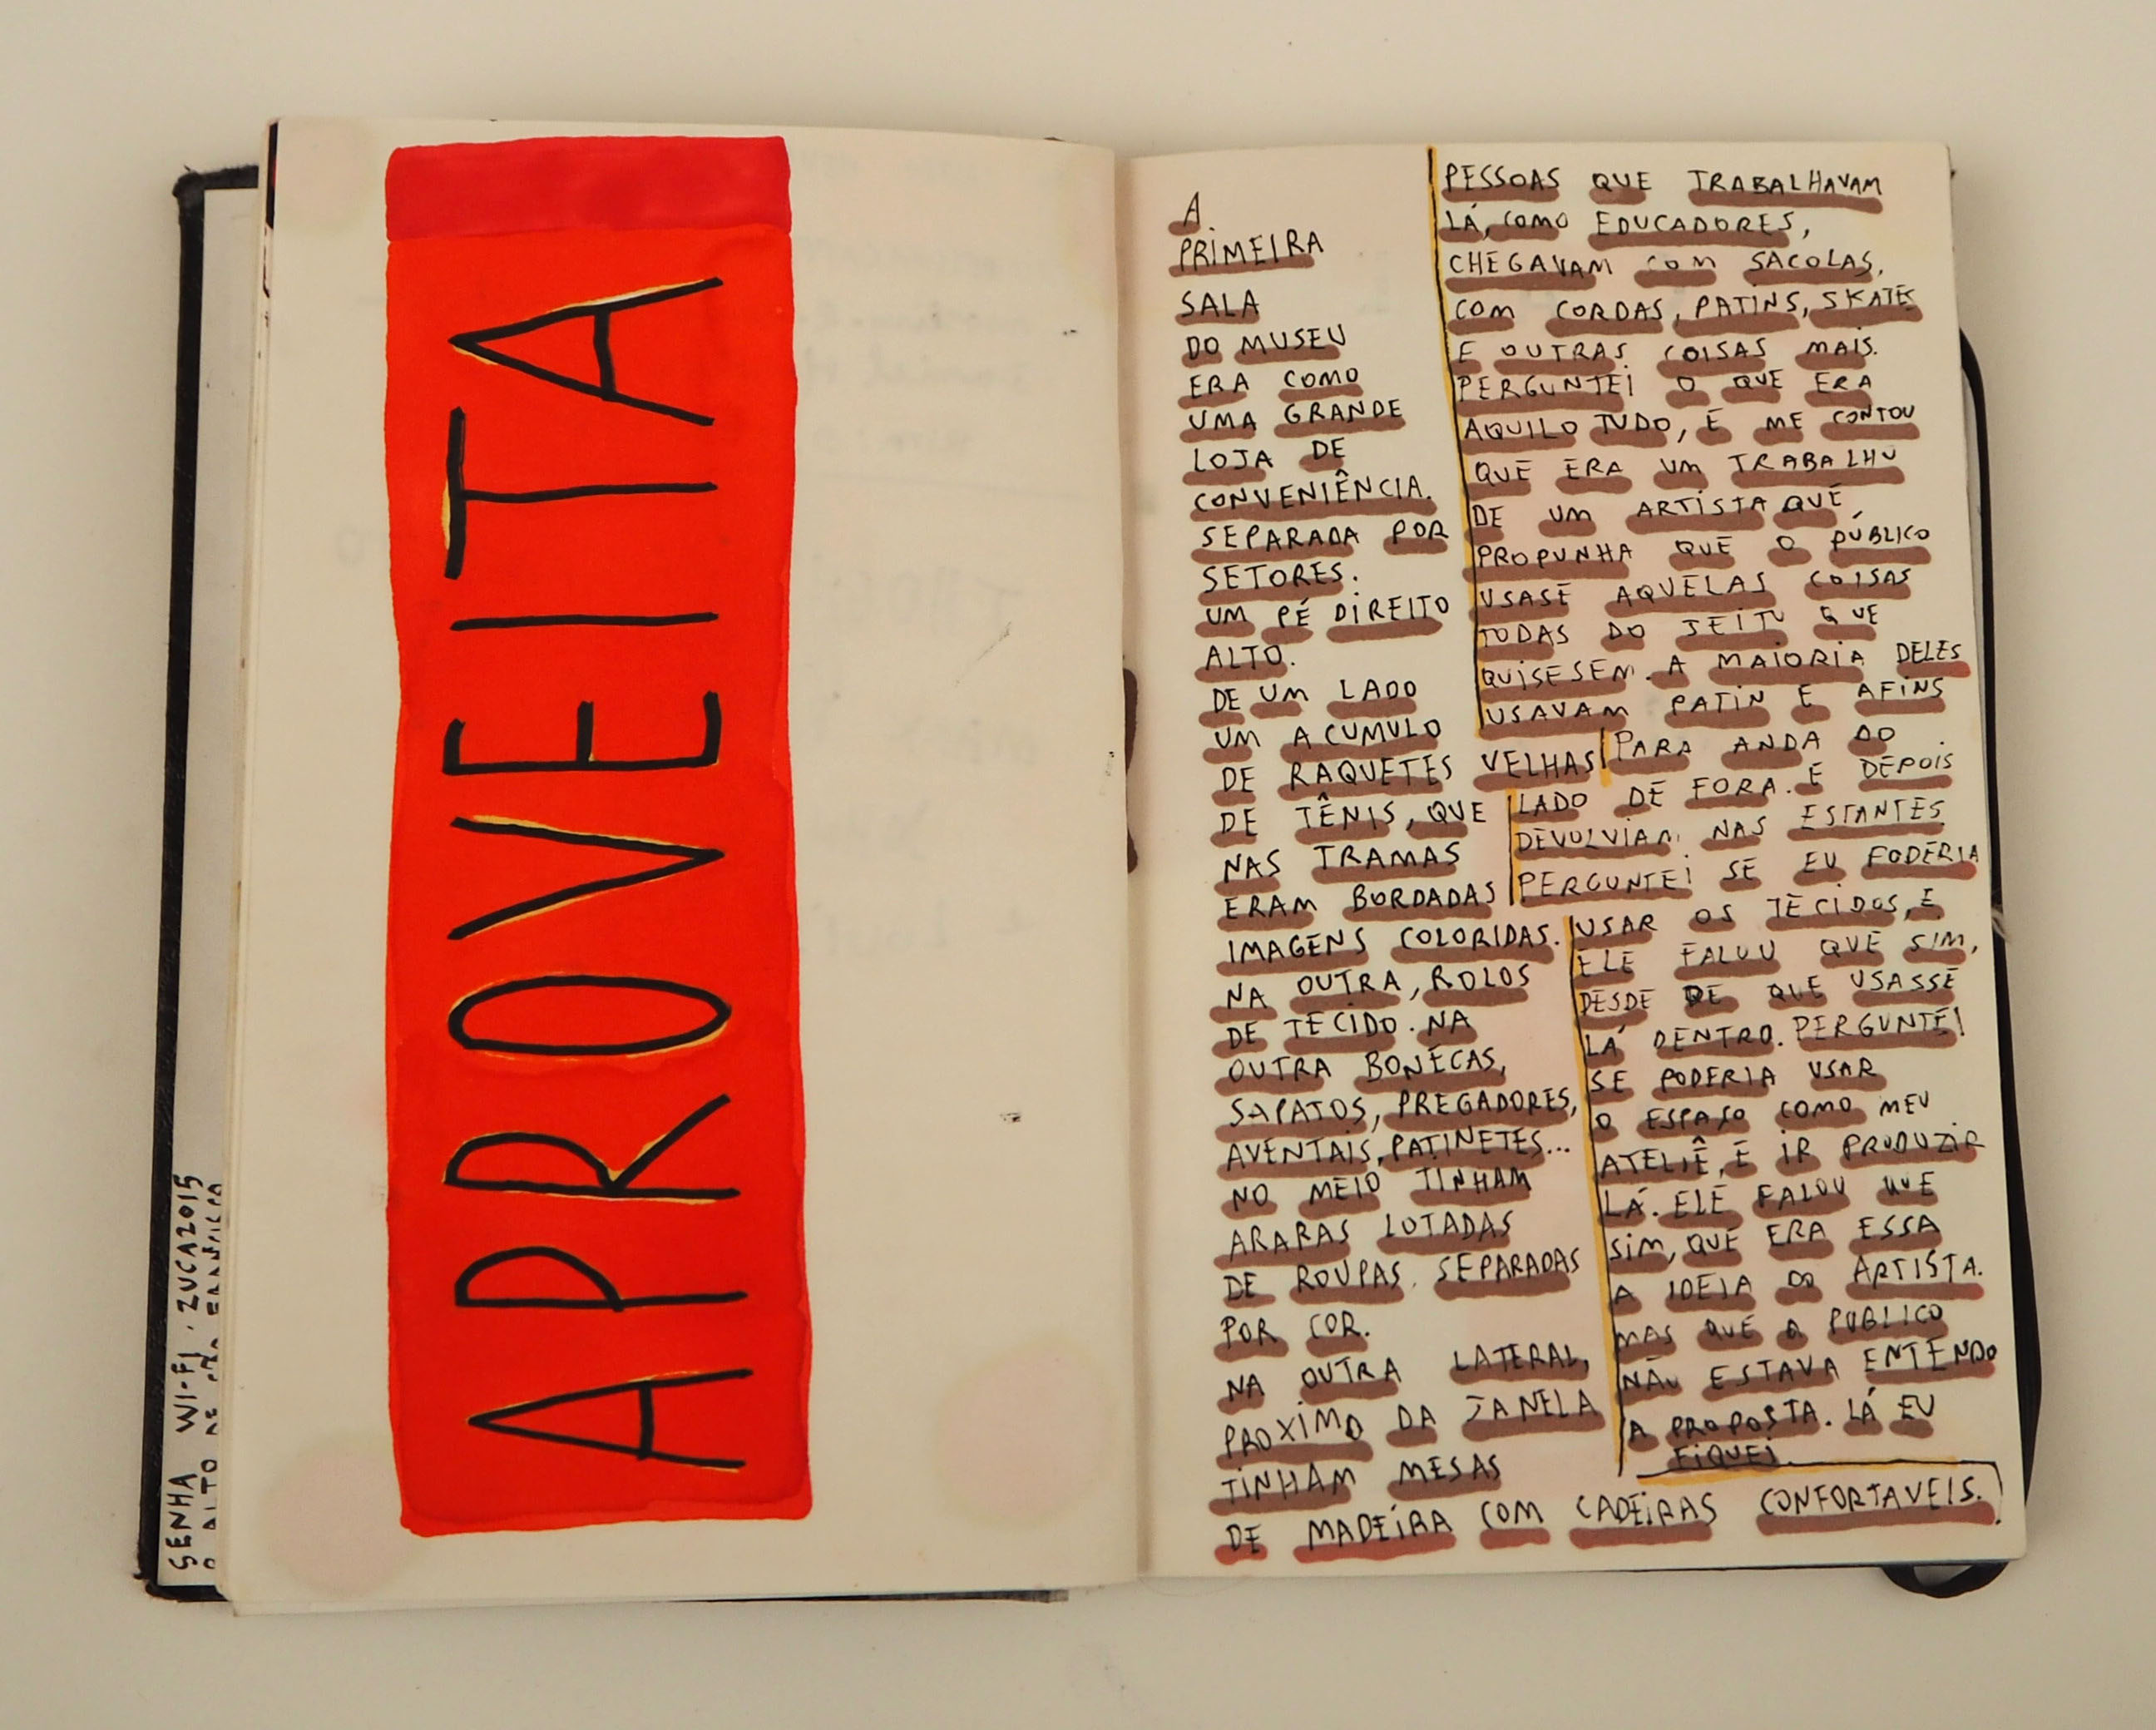 SENHA WI-FI . ZUCA2015
APROVEITA
A
PRIMEIRA
SALA
DO MUSEU
ERA COMO
UMA GRANDE
LOJA DE
CONVENIÊNCIA.
SEPARADA POR
SETORES.
UM PÉ DIREITO
ALTO.
DE UM LADO
UM ACUMULO
DE RAQUETES VELHAS
DE TÊNIS, QUE
NAS TRAMAS
ERAM BORDADAS
IMAGENS COLORIDAS.
NA OUTRA, ROLOS
DE TECIDO. NA
OUTRA BONECAS,
SAPATOS, PREGADORES,
AVENTAIS, PATINETES...
NO MEIO TINHAM
ARARAS LOTADAS
DE ROUPAS. SEPARADAS
POR COR.
NA OUTRA LATERAL,
PROXIMO DA JANELA
TINHAM MESAS
DE MADEIRA COM CADEIRAS CONFORTAVEIS.
PESSOAS QUE TRABALHAVAM
LÁ, COMO EDUCADORES,
CHEGAVAM COM SACOLAS,
COM CORDAS, PATINS, SKATES
E OUTRAS COISAS MAIS.
PERGUNTEI O QUE ERA
AQUILO TUDO, E ME CONTOU
QUE ERA UM TRABALHO
DE UM ARTISTA QUE
PROPUNHA QUE O PÚBLICO
USASE AQUELAS COISAS
TODAS DO JEITO QUE
QUISESEM. A MAIORIA DELES
USAVAM PATIN E AFINS
PARA ANDA DO
LADO DE FORA. E DEPOIS
DEVOLVIAM NAS ESTANTES.
PERGUNTEI SE EU PODERIA
USAR OS TECIDOS, E
ELE FALOU QUE SIM,
DESDE DE QUE USASSE
LÁ DENTRO. PERGUNTEI
SE PODERIA USAR
O ESPAÇO COMO MEU
ATELIÊ, E IR PRODUZIR
LÁ. ELE FALOU QUE
SIM, QUE ERA ESSA
A IDEIA DO ARTISTA.
MAS QUE O PUBLICO
NÃO ESTAVA ENTENDO
A PROPOSTA. LÁ EU
FIQUEI.